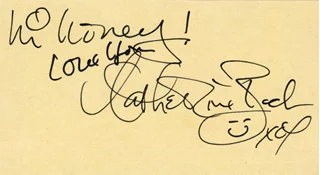 Hi Honey!
Love You
Catherine Bach
xo